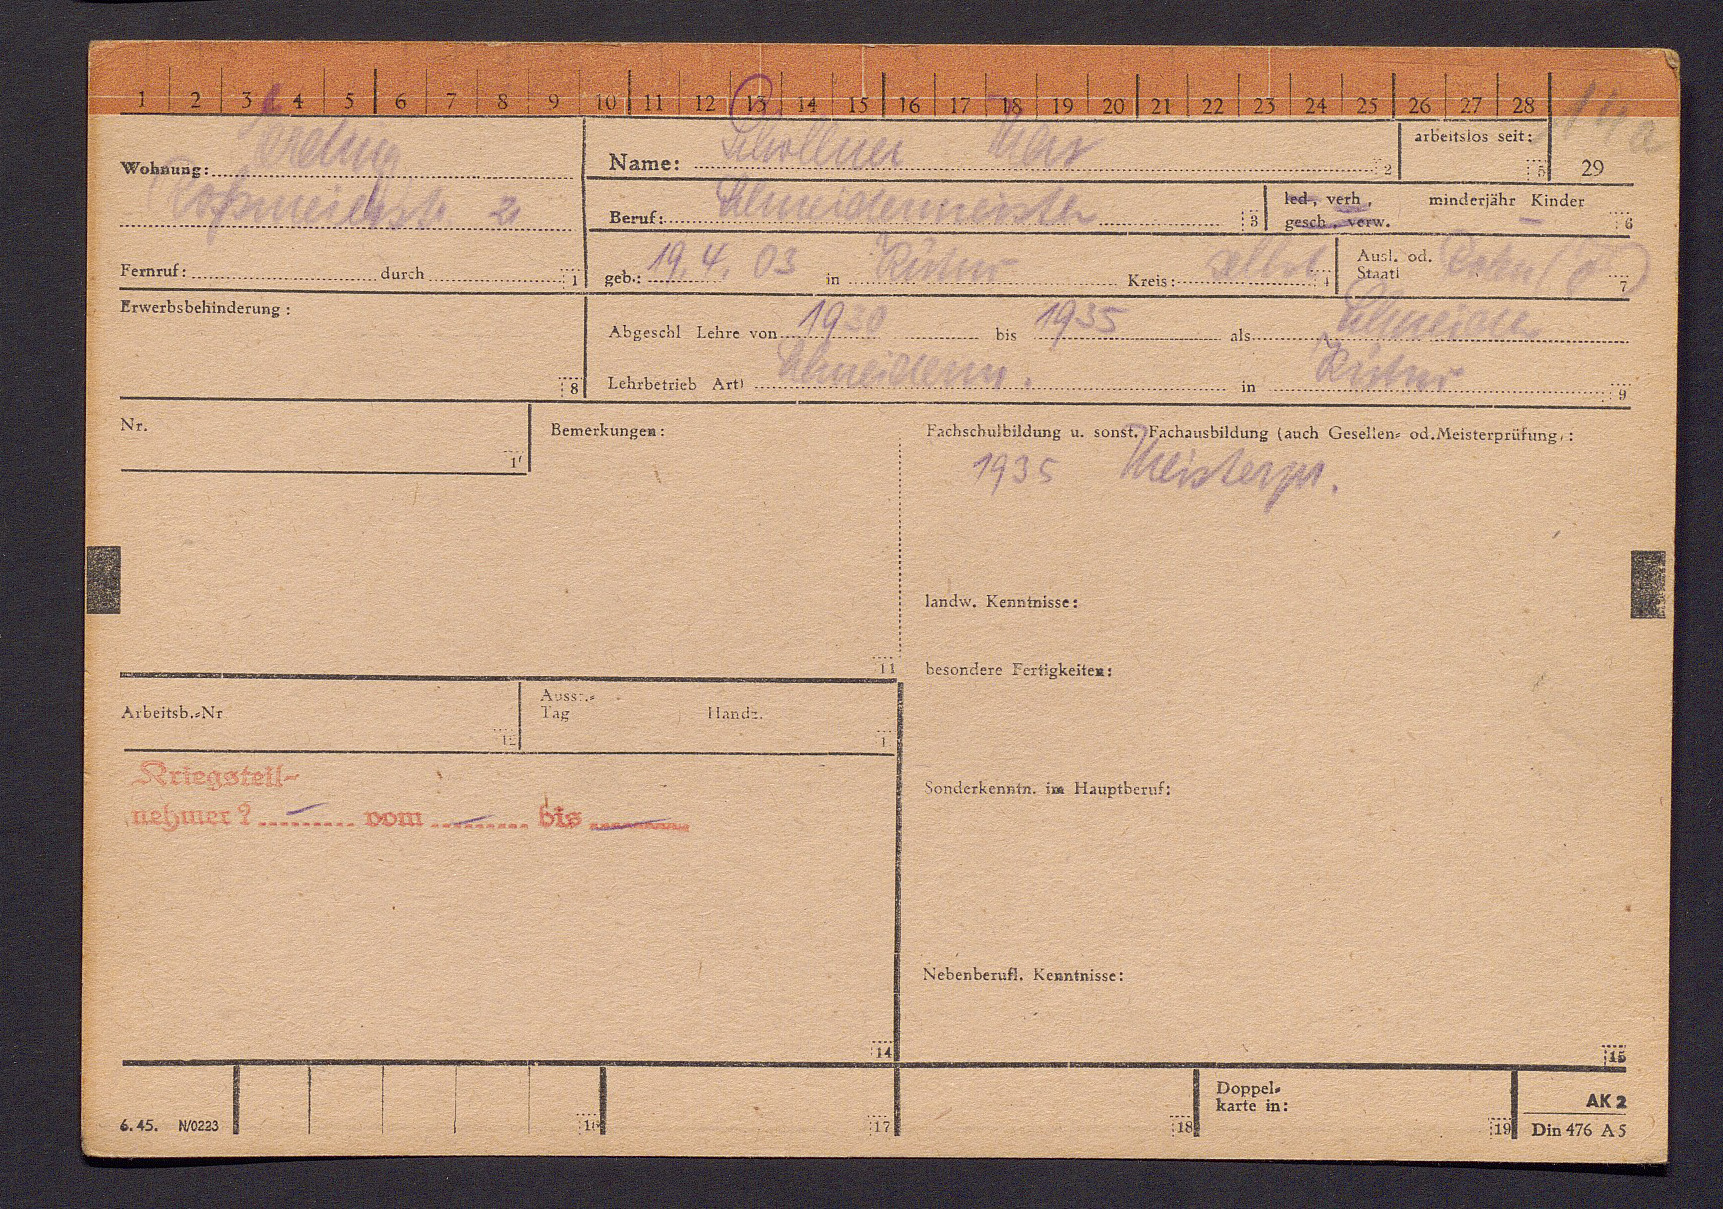 1 2 3 4 5 6 7 8 9 10 11 12 13 14 15 16 17 18 19 20 21 22 23 24 25 26 27 28
Wohnung:
2
Fernruf: durch 1
Name: 2
arbeitslos seit: 5
29
Beruf: Schneidermeister 3
led., verh., gesch., verw.
minderjähr Kinder – 6
geb.: 19.4.03 in Kreis: selbst 4
Ausl. od. Staatl 7
Erwerbsbehinderung: 8
Abgeschl Lehre von 1930 bis 1935 als Schneider
Lehrbetrieb Art) in 9
Nr.
Bemerkungen:
11
Fachschulbildung u. sonst. Fachausbildung (auch Gesellen= od. Meisterprüfung,:
1935 Meisterpr.
landw. Kenntnisse:
besondere Fertigkeiten:
Arbeitsb.=Nr 12
Tag Handz.
Kriegsteil-
nehmer? – vom – bis –
14
Sonderkenntn. im Hauptberuf:
Nebenberufl. Kenntnisse:
15
6.45. N/0223
17
18
Doppel=
karte in:
19
AK 2
Din 476 A5